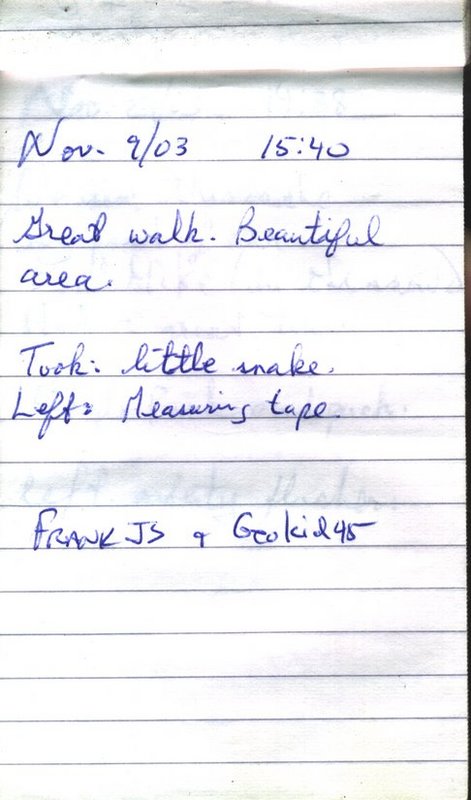 Nov. 9/03 15:40
Great walk. Beautiful
area.
Took: little snake.
Left: Measuring tape.
FRANKJS & Geokid45